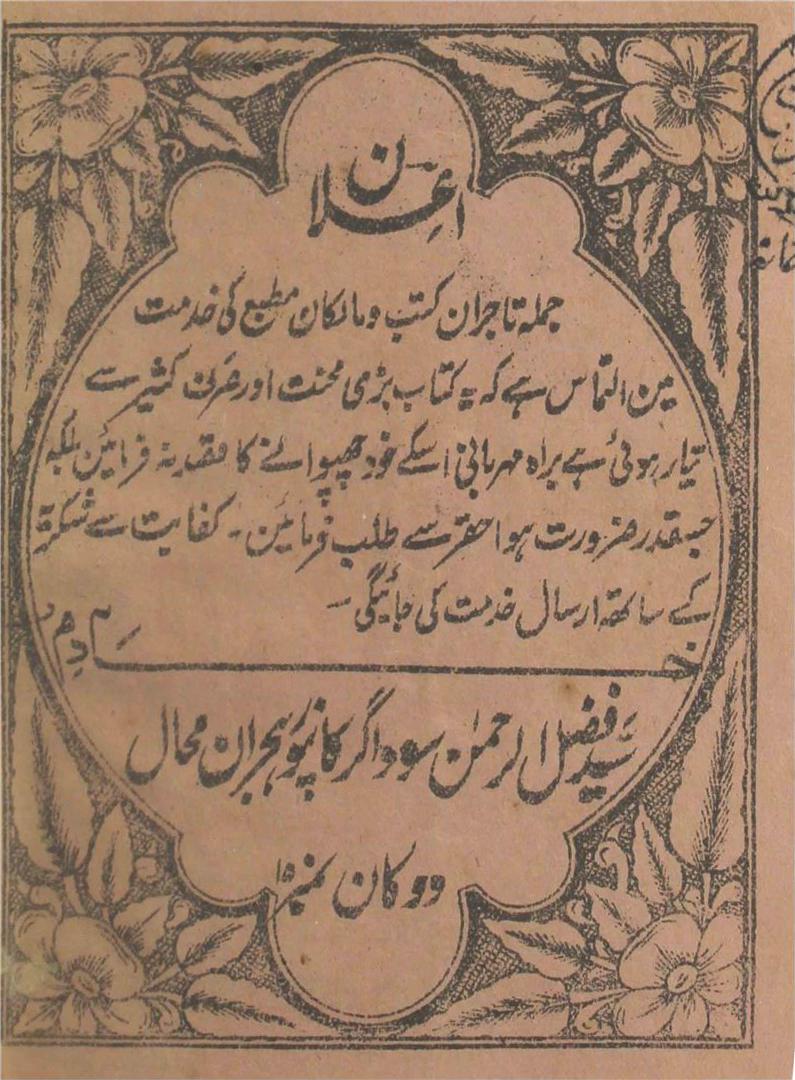 اعلان
جملہ تاجران کتب و مالکان مطبع کی خدمت
مین التماس ہے کہ یہ کتاب بڑی محنت اور صرف کثیر سے
تیار ہوئی ہے براہ مہربانی اسکے خود چھپوانے کا قصد نہ فرمائین بلکہ
جسقدر ضرورت ہو احقر سے طلب فرمائین۔ کفایت سے شکریۃ
کے ساتھ ارسال خدمت کی جائیگی۔
خادم
سید فضل الرحمٰن سوداگر کانپور بجران محال
دوکان نمبر ۱۵